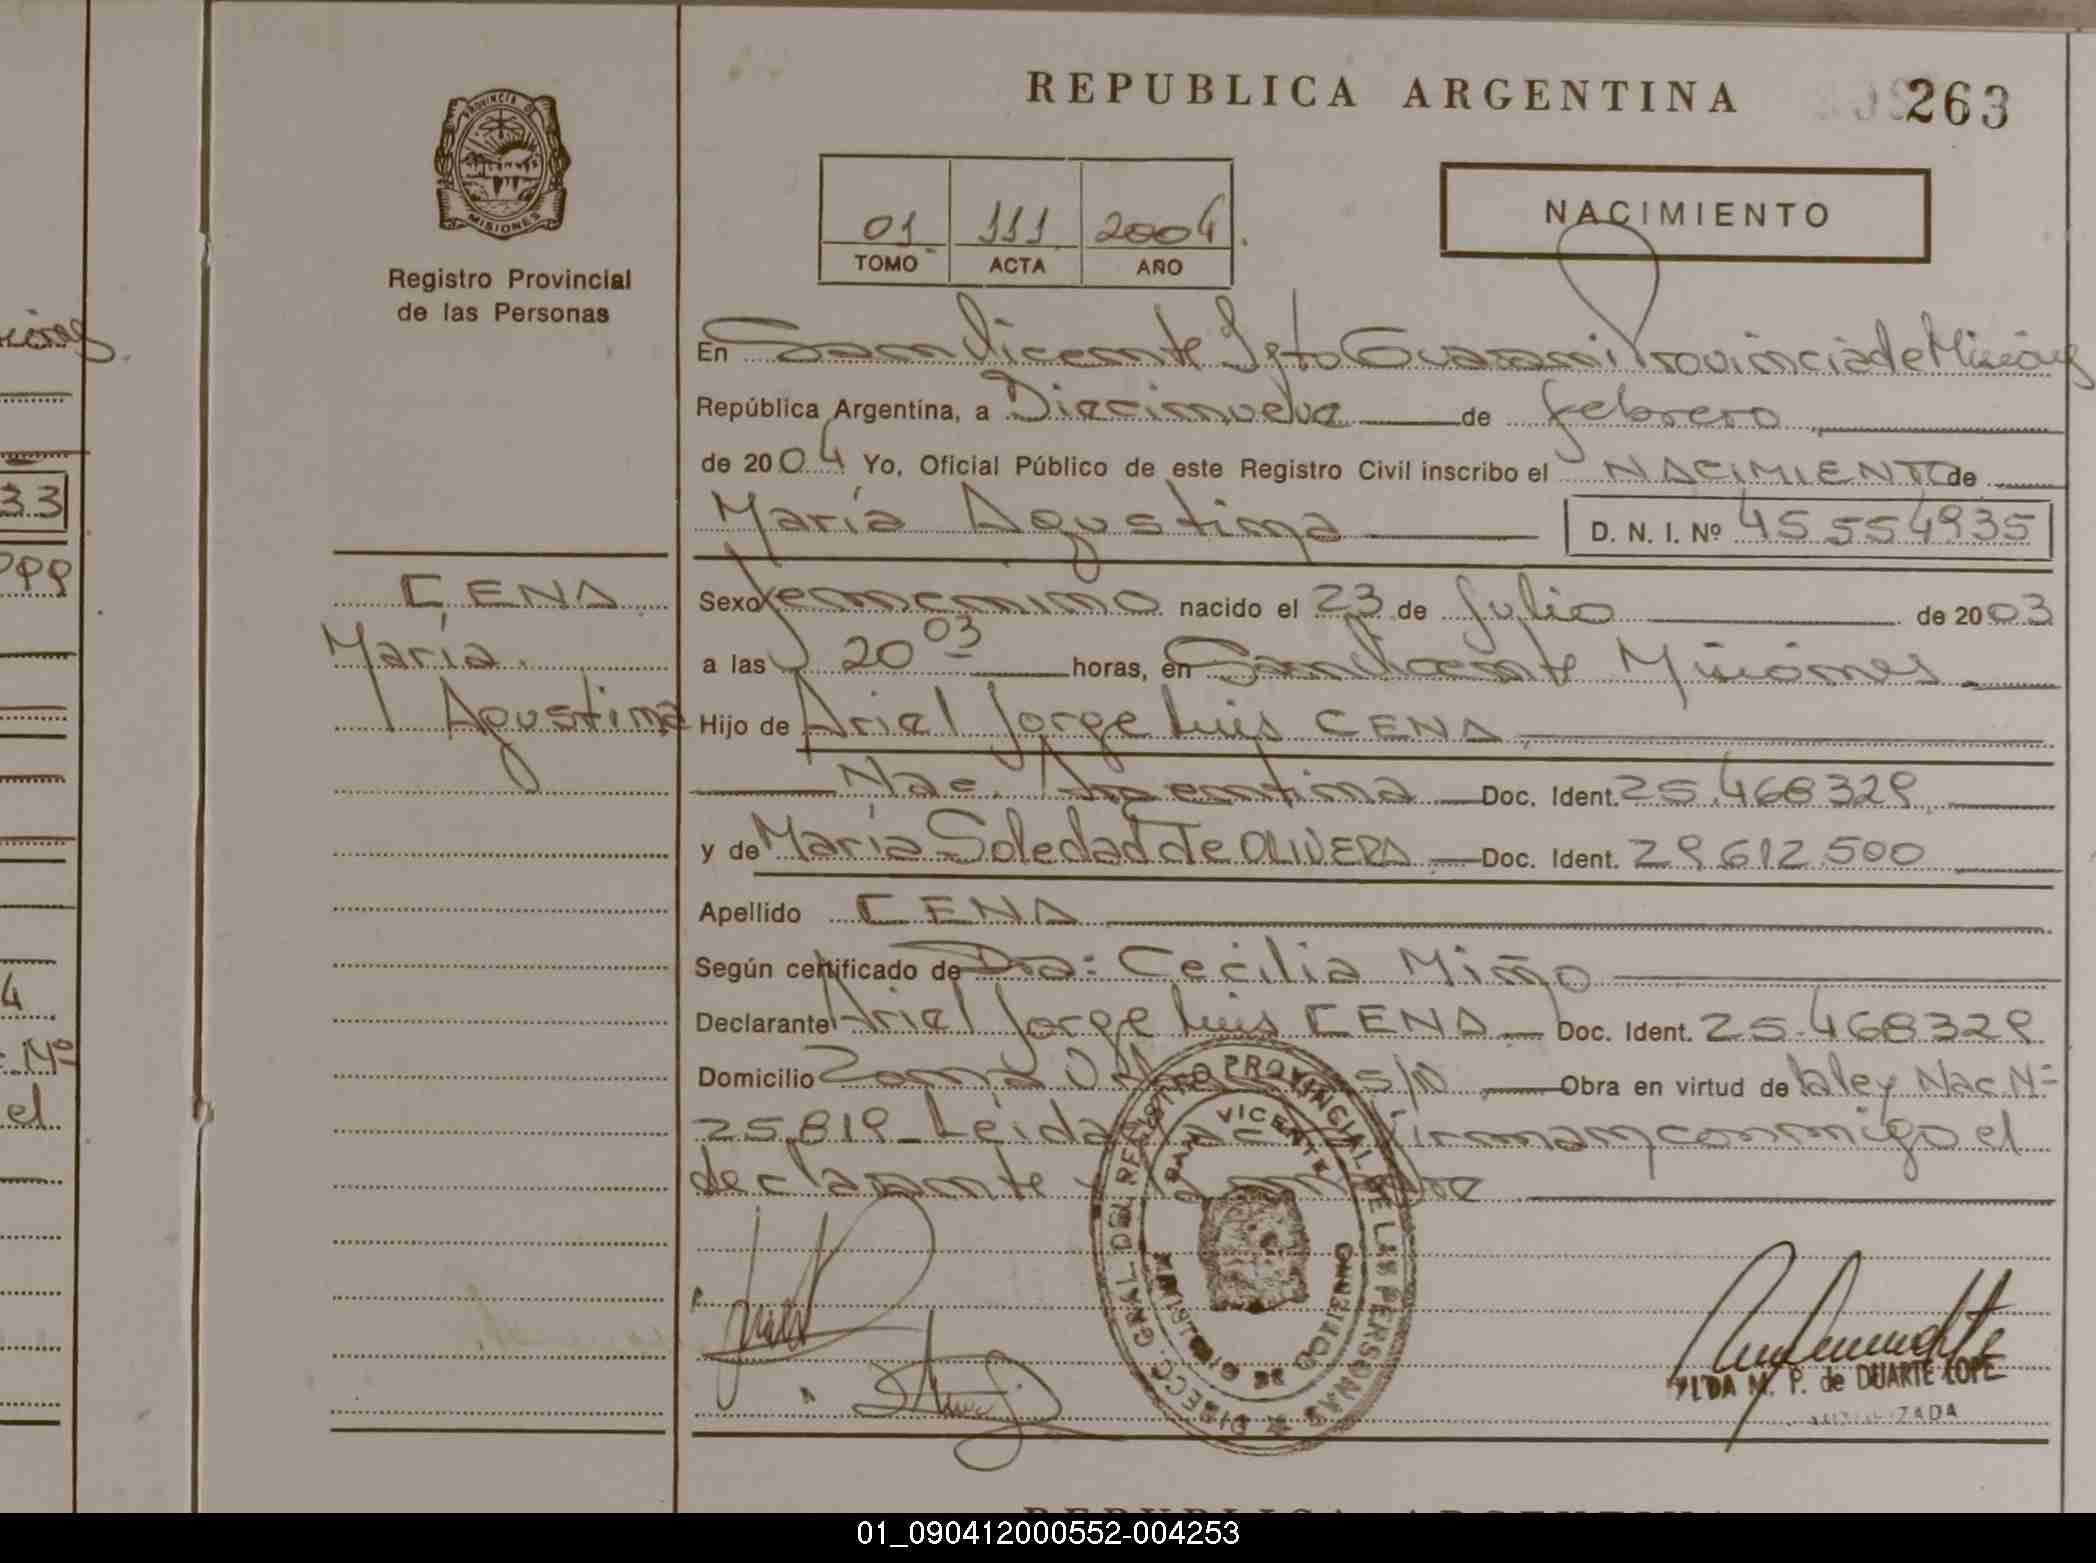 REPUBLICA ARGENTINA
263
PROVINCIA DE
MISIONES
Registro Provincial
de las Personas
01 111 2004
TOMO ACTA AÑO
NACIMIENTO
En San Vicente Dpto Guarani Provincia de Misiones
República Argentina, a Diecinueve de febrero
de 2004 Yo, Oficial Público de este Registro Civil inscribo el NACIMIENTO de
María Agustina D. N. I. Nº 45554935
CENA
María
Agustina
Sexo femenino nacido el 23 de Julio de 2003
a las 20 03 horas, en San Vicente Misiones
Hijo de Ariel Jorge Luis CENA
Nac. Argentina Doc. Ident. 25.468329
y de María Soledad De OLIVERA Doc. Ident. 29612500
Apellido CENA
Según certificado de Dra: Cecilia Miño
Declarante Ariel Jorge Luis CENA Doc. Ident. 25.468329
Domicilio Zona S/N Obra en virtud de la ley Nac Nº
25.819_ Leida firman conmigo el
declarante y la madre
DIRECC. GRAL. DEL REGISTRO PROVINCIAL DE LAS PERSONAS
SAN VICENTE
M. P. de DUARTE LOPE
33
299
4
Nº
el
01_090412000552-004253